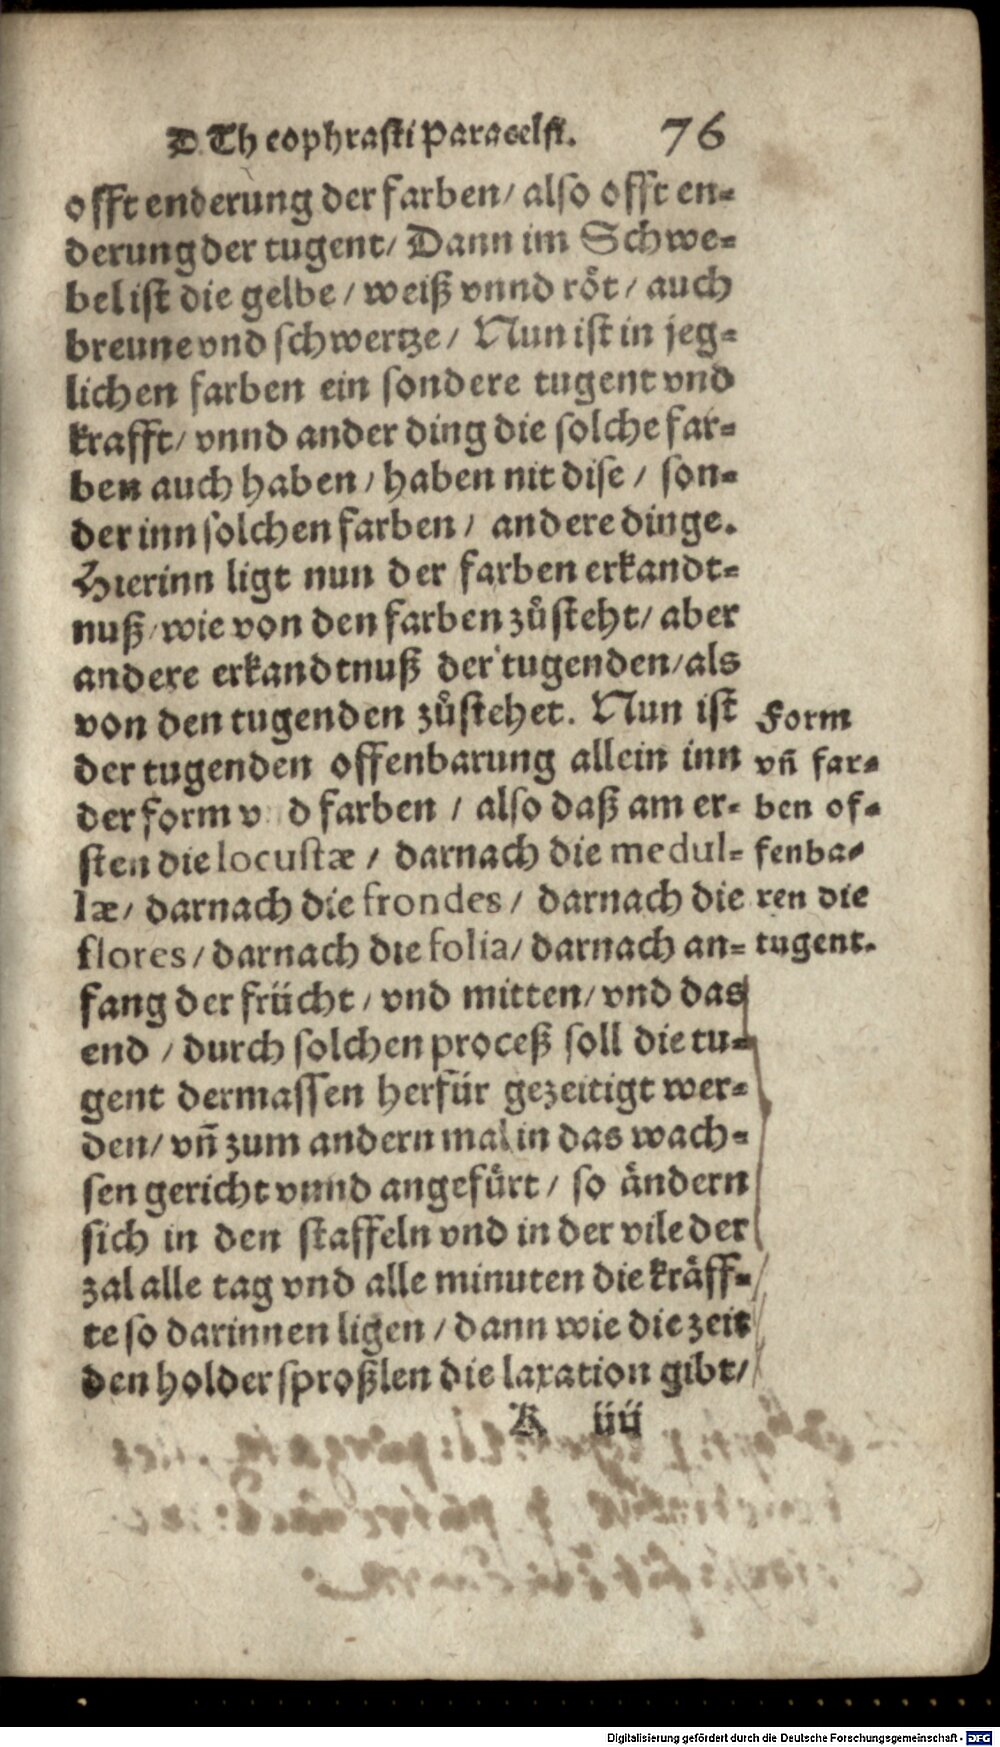 D. Theophrasti Paracelsi. 76
offt enderung der farben / also offt en-
derung der tugent / Dann im Schwe-
bel ist die gelbe / weiß vnnd röt / auch
breune vnd schwertze / Nun ist in jeg-
lichen farben ein sondere tugent vnd
krafft / vnnd ander ding die solche far-
ben auch haben / haben nit dise / son-
der inn solchen farben / andere dinge.
Hierinn ligt nun der farben erkandt-
nuß / wie von den farben zůsteht / aber
andere erkandtnuß der tugenden / als
von den tugenden zůstehet. Nun ist
der tugenden offenbarung allein inn
der form v d farben / also daß am er-
sten die locustæ / darnach die medul-
læ / darnach die frondes / darnach die
flores / darnach die folia / darnach an-
fang der frücht / vnd mitten / vnd das
end / durch solchen proceß soll die tu-
gent dermassen herfür gezeitigt wer-
den / vñ zum andern mal in das wach-
sen gericht vnnd angefürt / so ändern
sich in den staffeln vnd in der vile der
zal alle tag vnd alle minuten die kräff-
te so darinnen ligen / dann wie die zeit
den holdersproßlen die laxation gibt /
K iiij
Form
vñ far-
ben of-
fenba-
ren die
tugent.
Digitalisierung gefördert durch die Deutsche Forschungsgemeinschaft - DFG